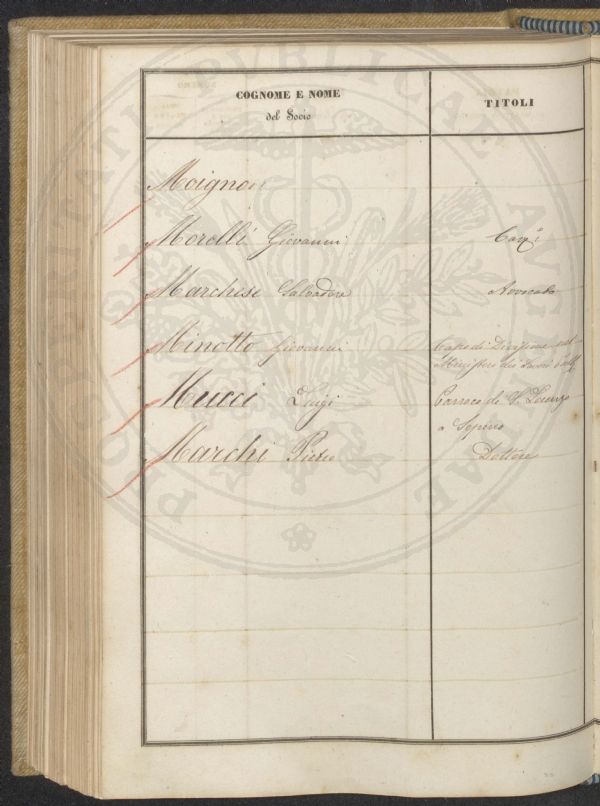 COGNOME E NOME
del Socio
TITOLI
Moignon
Morelli Giovanni Cav.e
Marchese Salvadore Avvocato
Minotto Giovanni Capo di Divisione nel
Ministero dei Lavori Pubb.
Mucci Luigi Parroco di S. Lorenzo
a Sepino
Marchi Pietro Dottore